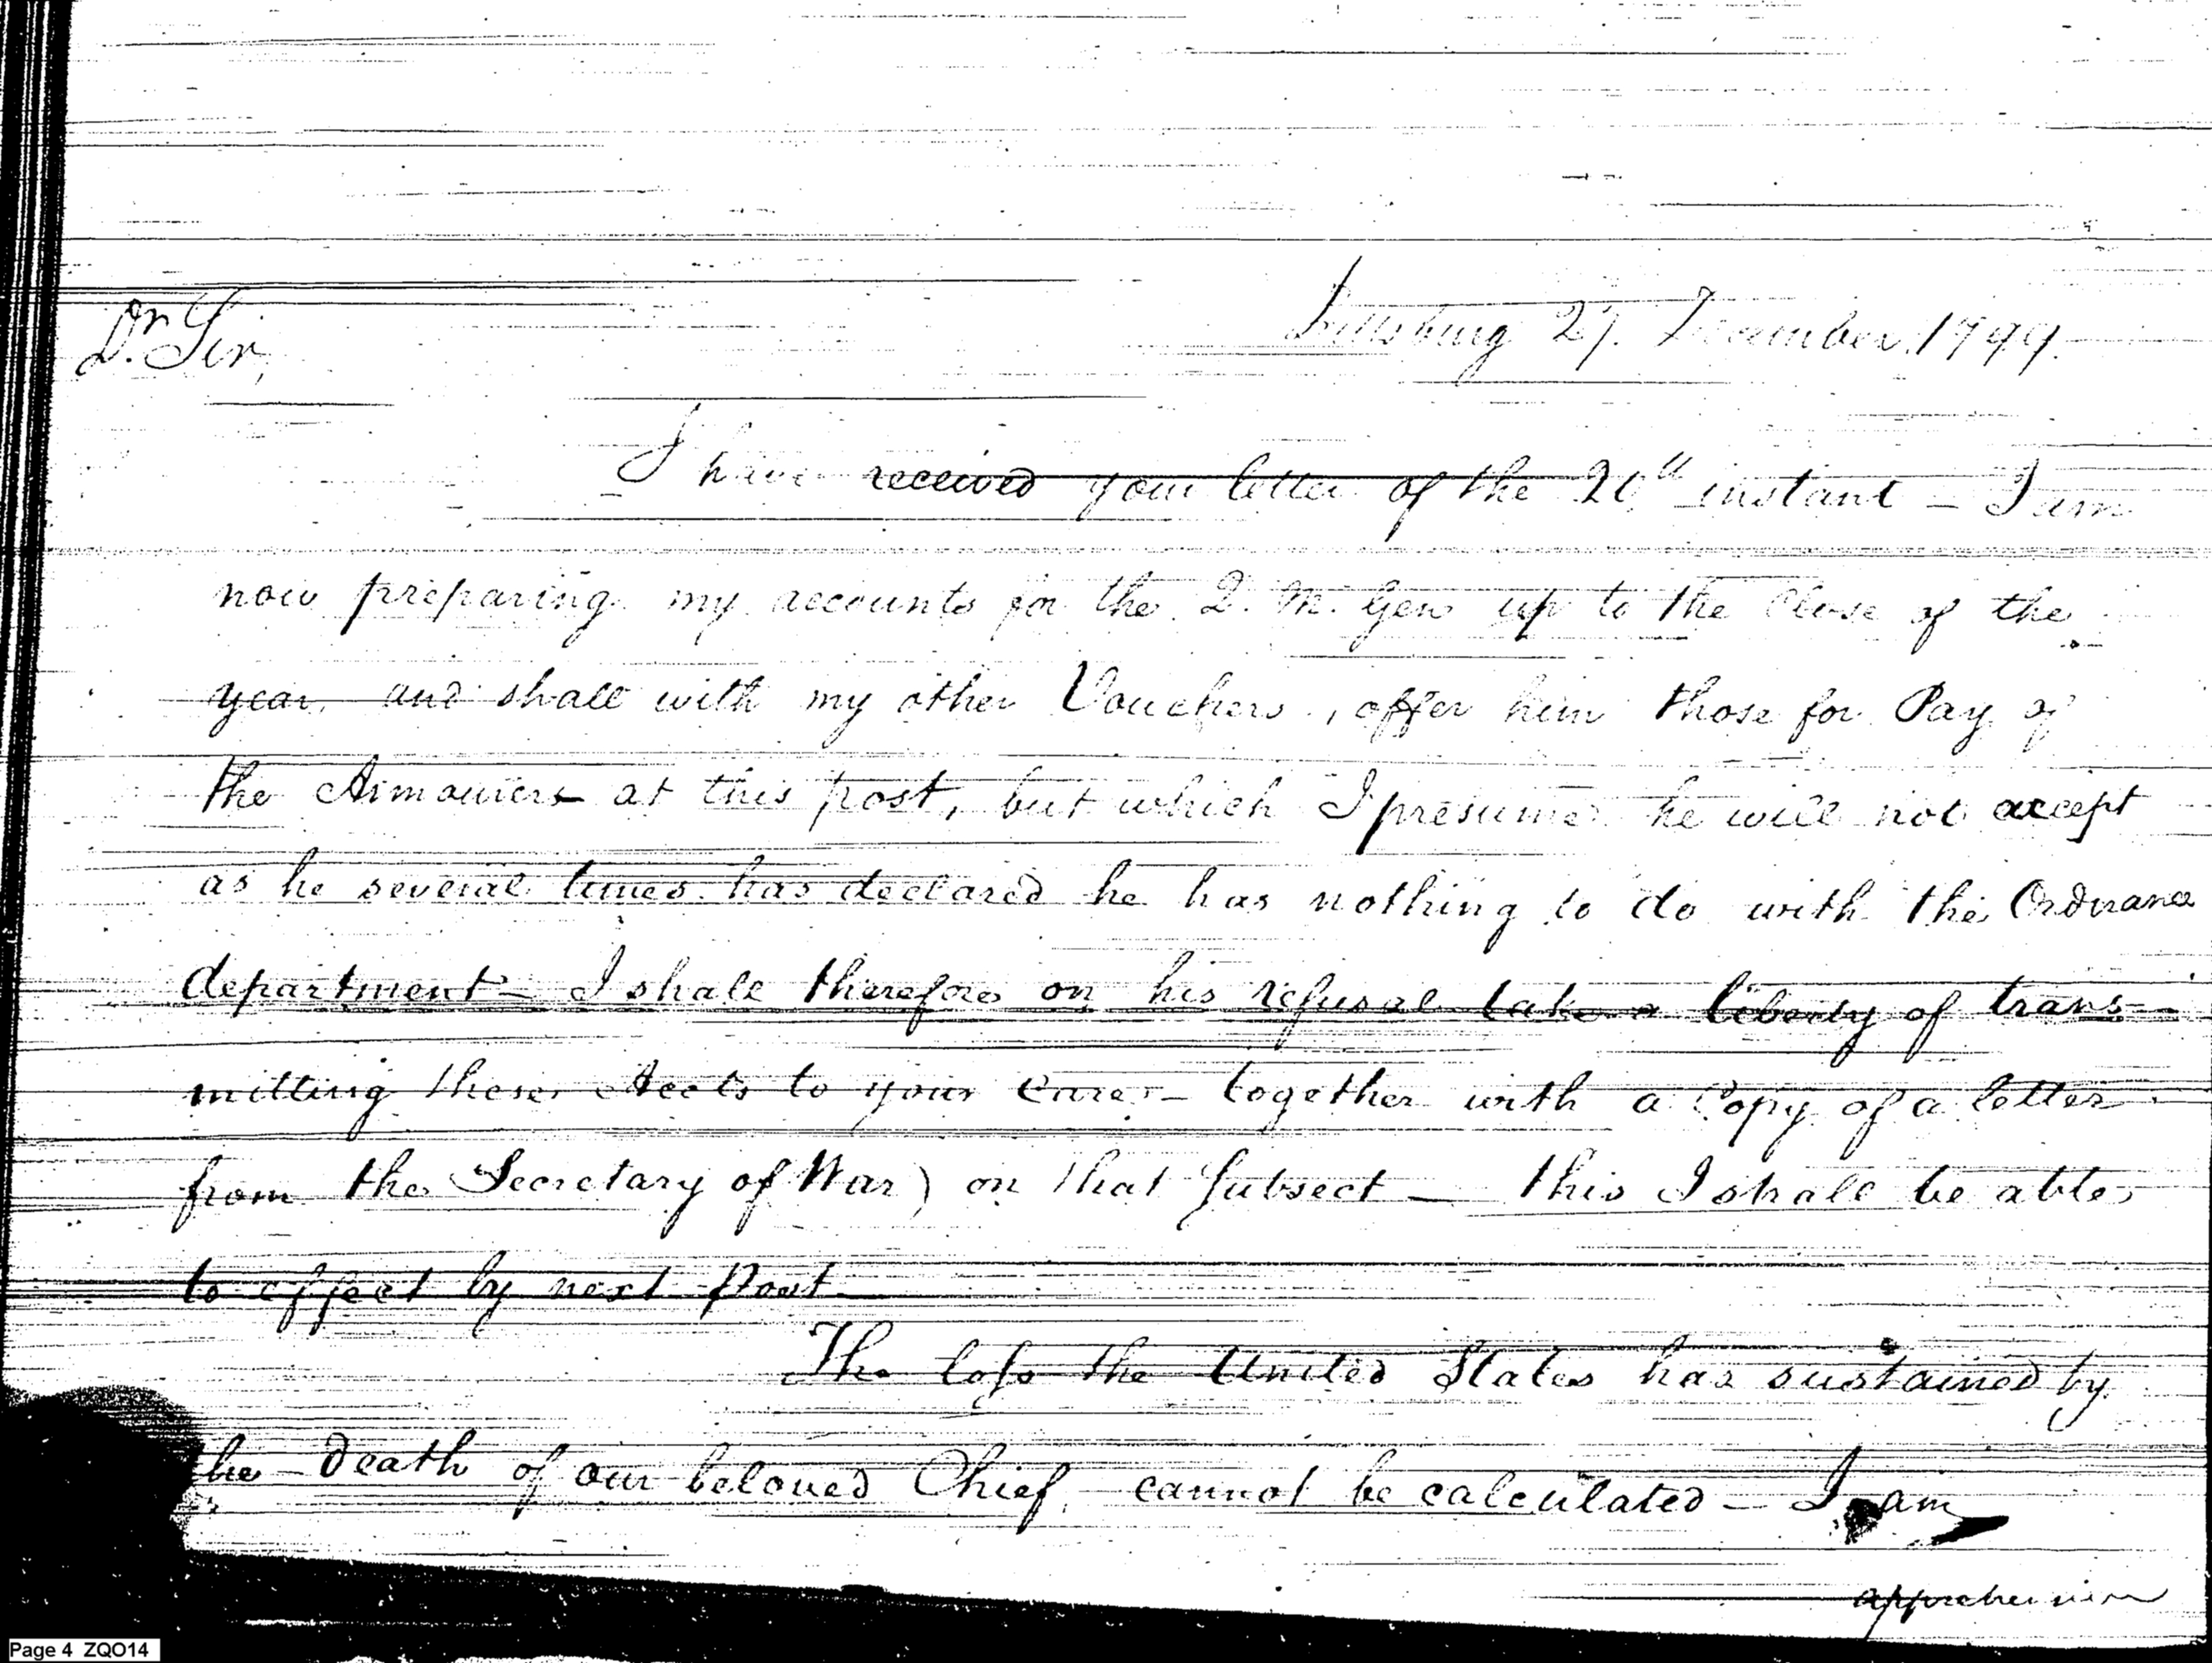 Dr. Sir,
Pittsburg 27. December. 1799.
I have received your letter of the 20th instant - I am
now preparing my accounts for the Q. M. Gen up to the Close of the
year, and shall with my other Vouchers, offer him those for Pay of
the Armourers at this post, but which I presume he will not accept
as he several times has declared he has nothing to do with the Ordnance
department - I shall therefore on his refusal take a liberty of trans-
mitting these Accts to your Care - together with a Copy of a letter
from the Secretary of War) on that Subject - this I shall be able,
to effect by next Post -
The loss the United States has sustained by
the death of our beloved Chief, cannot be calculated - I am
apprehensive
Page 4 ZQO14